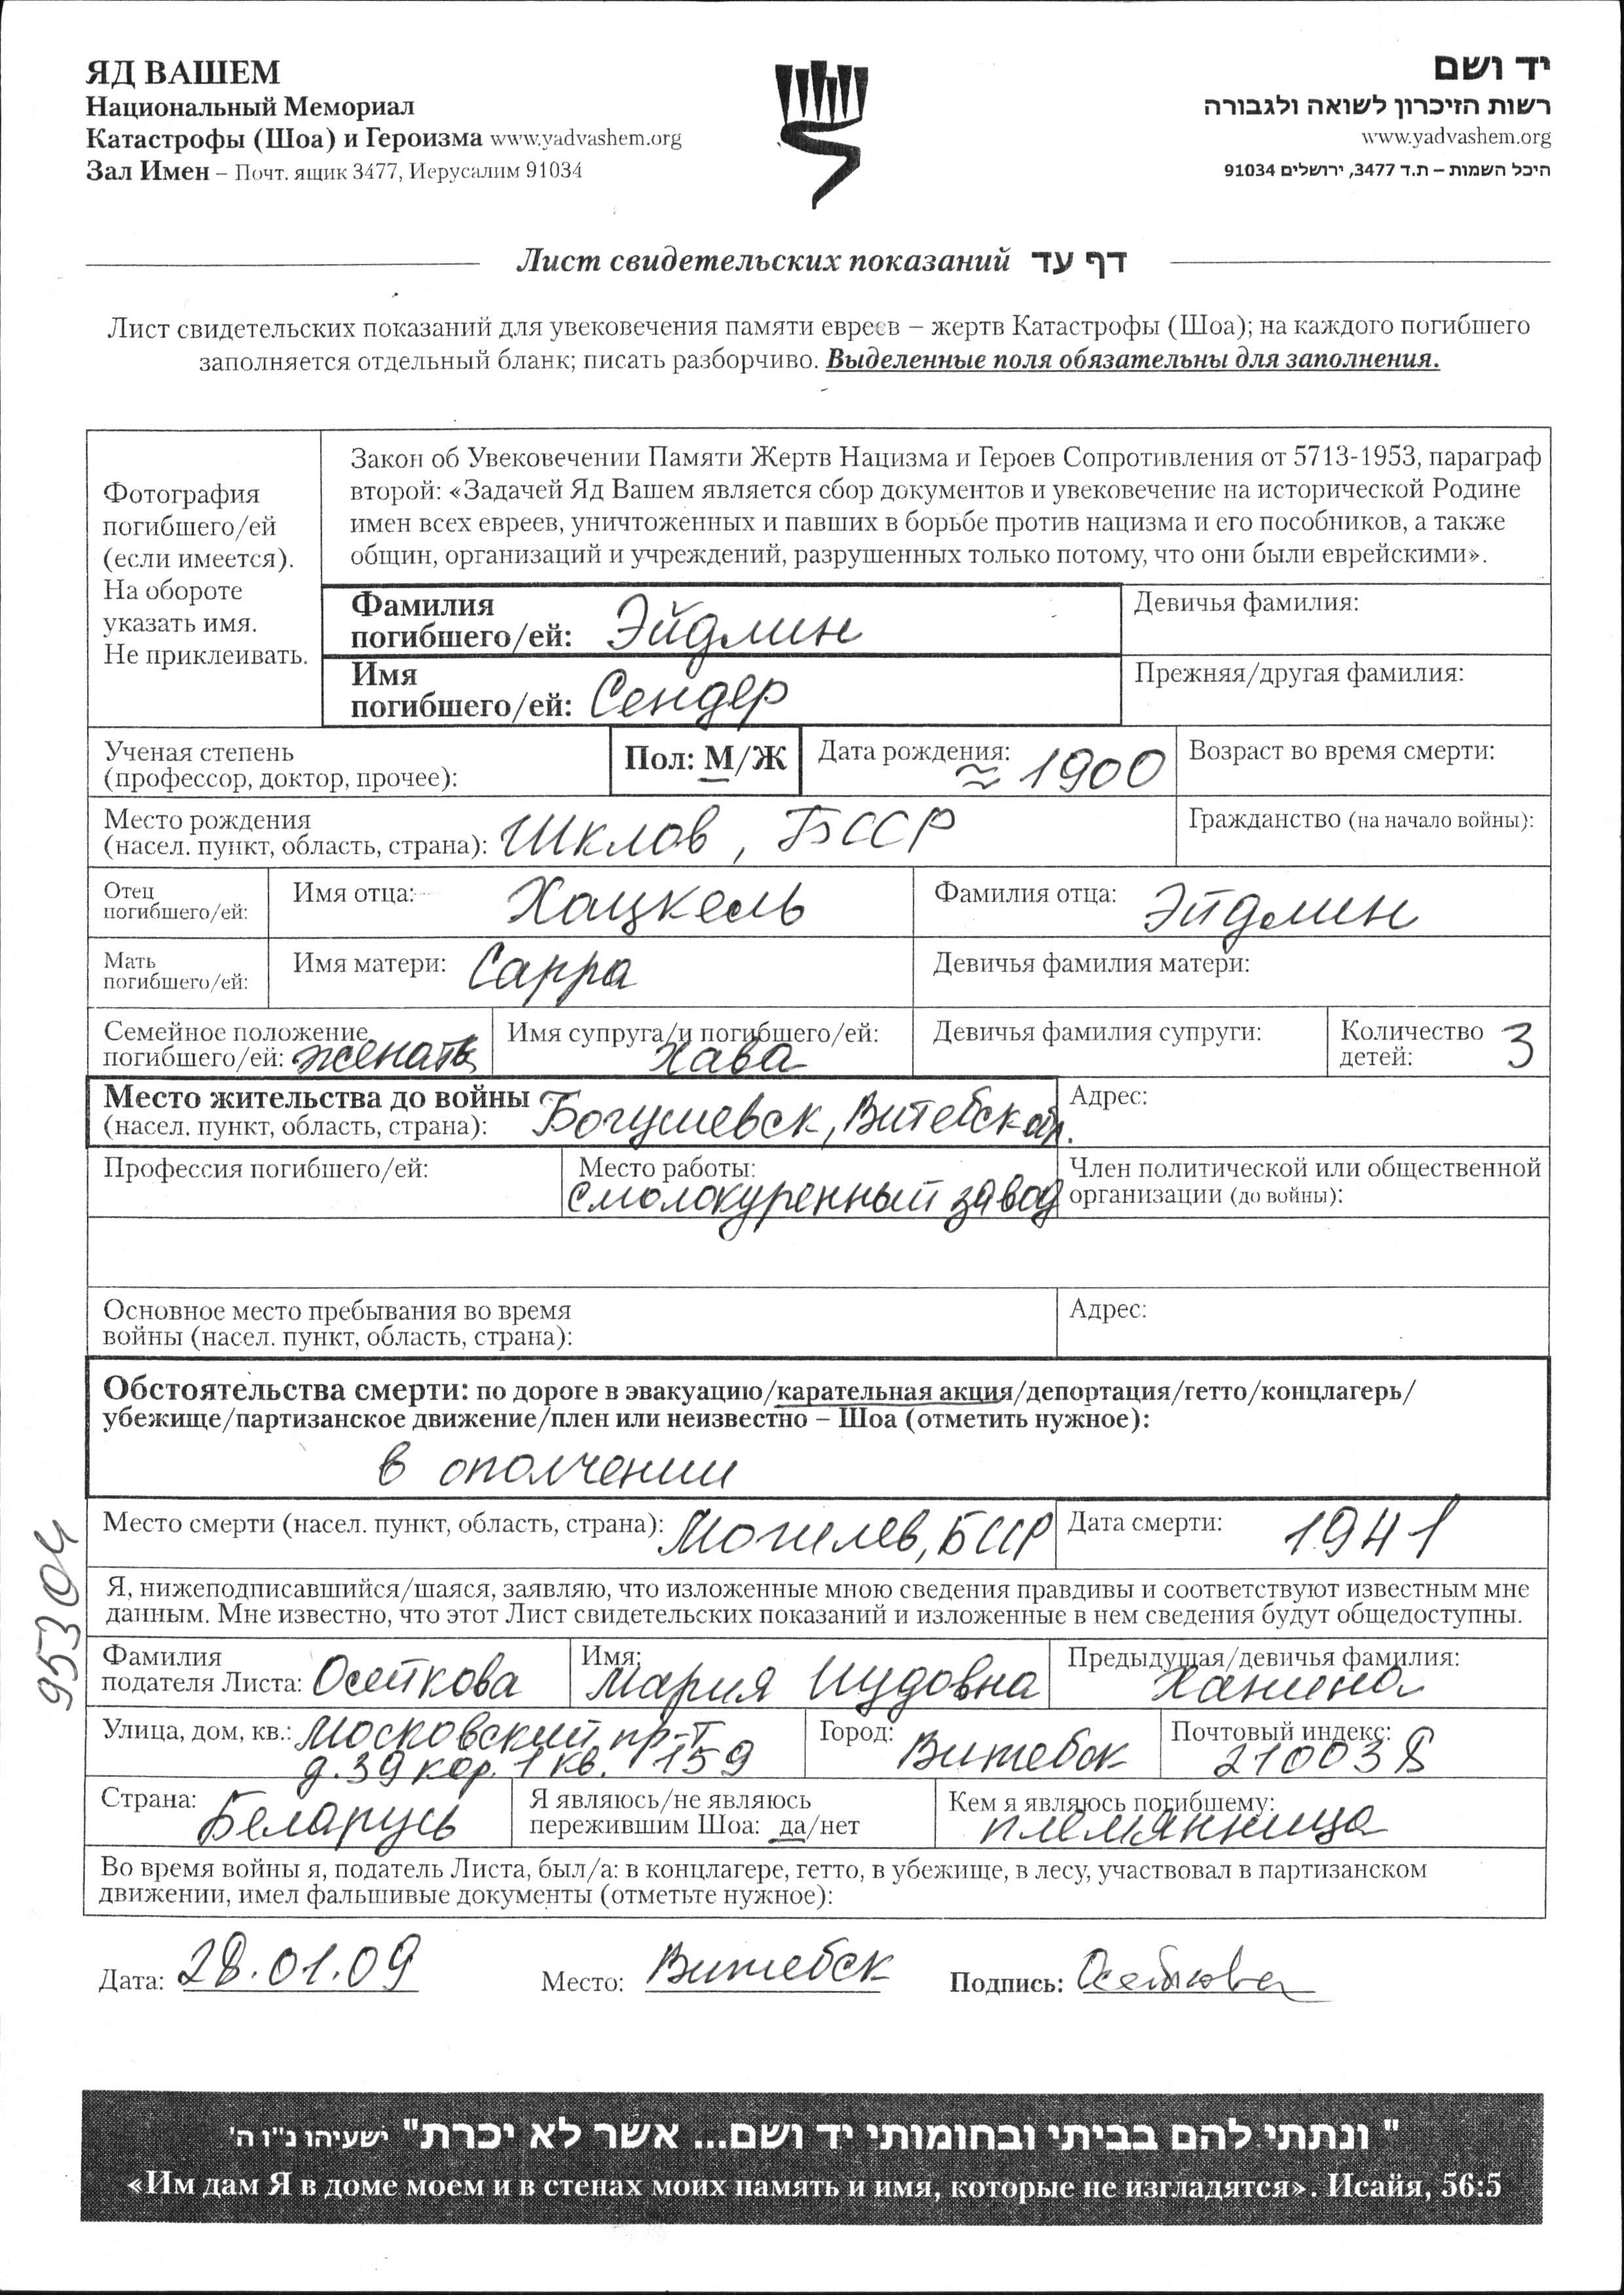 ЯД ВАШЕМ
Национальный Мемориал
Катастрофы (Шоа) и Героизма www.yadvashem.org
Зал Имен – Почт. ящик 3477, Иерусалим 91034
יד ושם
רשות הזיכרון לשואה ולגבורה
www.yadvashem.org
היכל השמות – ת.ד 3477, ירושלים 91034
Лист свидетельских показаний דף עד
Лист свидетельских показаний для увековечения памяти евреев – жертв Катастрофы (Шоа); на каждого погибшего
заполняется отдельный бланк; писать разборчиво. Выделенные поля обязательны для заполнения.
Фотография
погибшего/ей
(если имеется).
На обороте
указать имя.
Не приклеивать.
Закон об Увековечении Памяти Жертв Нацизма и Героев Сопротивления от 5713-1953, параграф
второй: «Задачей Яд Вашем является сбор документов и увековечение на исторической Родине
имен всех евреев, уничтоженных и павших в борьбе против нацизма и его пособников, а также
общин, организаций и учреждений, разрушенных только потому, что они были еврейскими».
Фамилия
погибшего/ей: Эйдлин
Девичья фамилия:
Имя
погибшего/ей: Сендер
Прежняя/другая фамилия:
Ученая степень
(профессор, доктор, прочее):
Пол: М/Ж
Дата рождения: ≈ 1900
Возраст во время смерти:
Место рождения
(насел. пункт, область, страна): Шклов, БССР
Гражданство (на начало войны):
Отец
погибшего/ей:
Имя отца: Хацкель
Фамилия отца: Эйдлин
Мать
погибшего/ей:
Имя матери: Сарра
Девичья фамилия матери:
Семейное положение
погибшего/ей: женат
Имя супруга/и погибшего/ей:
Хава
Девичья фамилия супруги:
Количество
детей: 3
Место жительства до войны
(насел. пункт, область, страна): Богушевск, Витебск обл.
Адрес:
Профессия погибшего/ей:
Место работы:
смолокуренный завод
Член политической или общественной
организации (до войны):
Основное место пребывания во время
войны (насел. пункт, область, страна):
Адрес:
Обстоятельства смерти: по дороге в эвакуацию/карательная акция/депортация/гетто/концлагерь/
убежище/партизанское движение/плен или неизвестно – Шоа (отметить нужное):
в ополчении
Место смерти (насел. пункт, область, страна): Могилев, БССР
Дата смерти: 1941
95304
Я, нижеподписавшийся/шаяся, заявляю, что изложенные мною сведения правдивы и соответствуют известным мне
данным. Мне известно, что этот Лист свидетельских показаний и изложенные в нем сведения будут общедоступны.
Фамилия
подателя Листа: Осеткова
Имя:
Мария Иудовна
Предыдущая/девичья фамилия:
Ханина
Улица, дом, кв.: Московский пр-т
д. 39 кор. 1 кв. 159
Город: Витебск
Почтовый индекс:
210038
Страна: Беларусь
Я являюсь/не являюсь
пережившим Шоа: да/нет
Кем я являюсь погибшему:
племянница
Во время войны я, податель Листа, был/а: в концлагере, гетто, в убежище, в лесу, участвовал в партизанском
движении, имел фальшивые документы (отметьте нужное):
Дата: 28.01.09 Место: Витебск Подпись: Осеткова
" ונתתי להם בביתי ובחומותי יד ושם... אשר לא יכרת" ישעיהו נ"ו ה'
«Им дам Я в доме моем и в стенах моих память и имя, которые не изгладятся». Исайя, 56:5